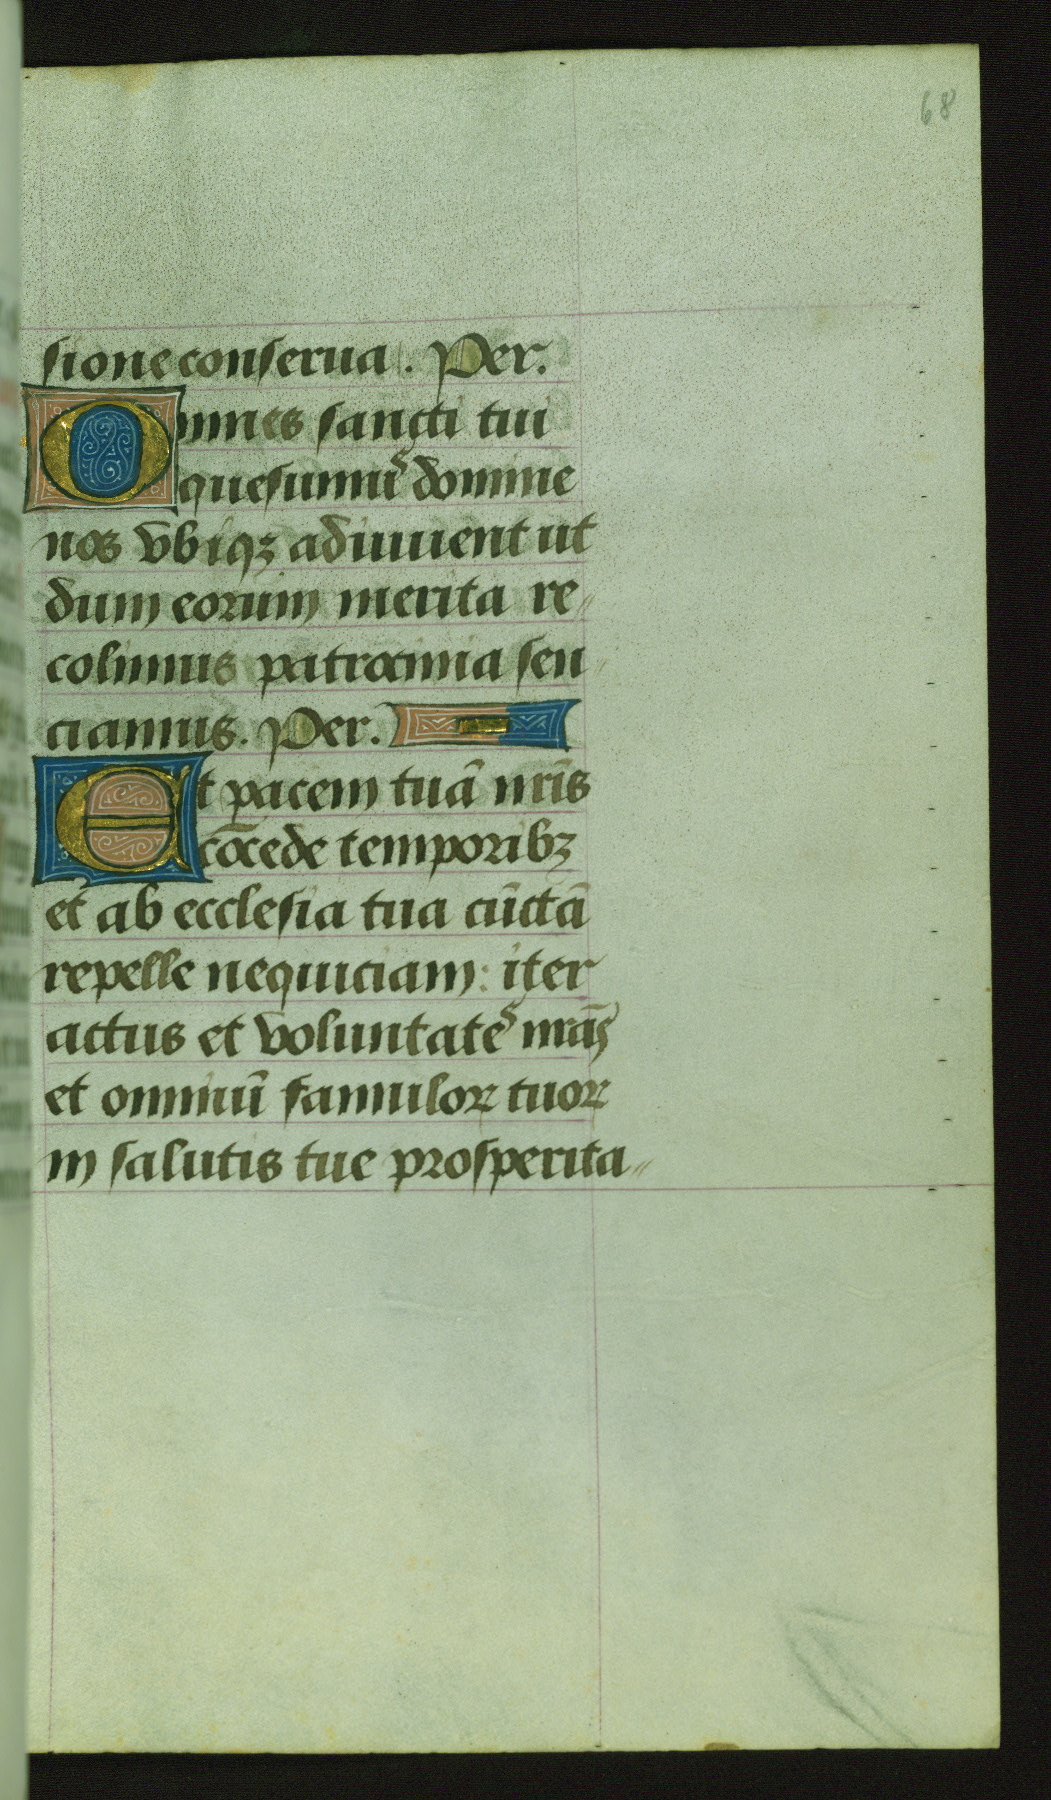 68
sione conserua. Per.
Omnes sancti tui
quesumus domine
nos vbiqꝫ adiuuent ut
dum eorum merita re〃
colimus patrocinia sen〃
ciamus. Per.
Et pacem tuā nr̄is
cōcede temporibꝫ
et ab ecclesia tua cūctā
repelle nequiciam: iter
actus et voluntates nrās
et omniū famuloꝝ tuoꝝ
in salutis tue prosperita〃